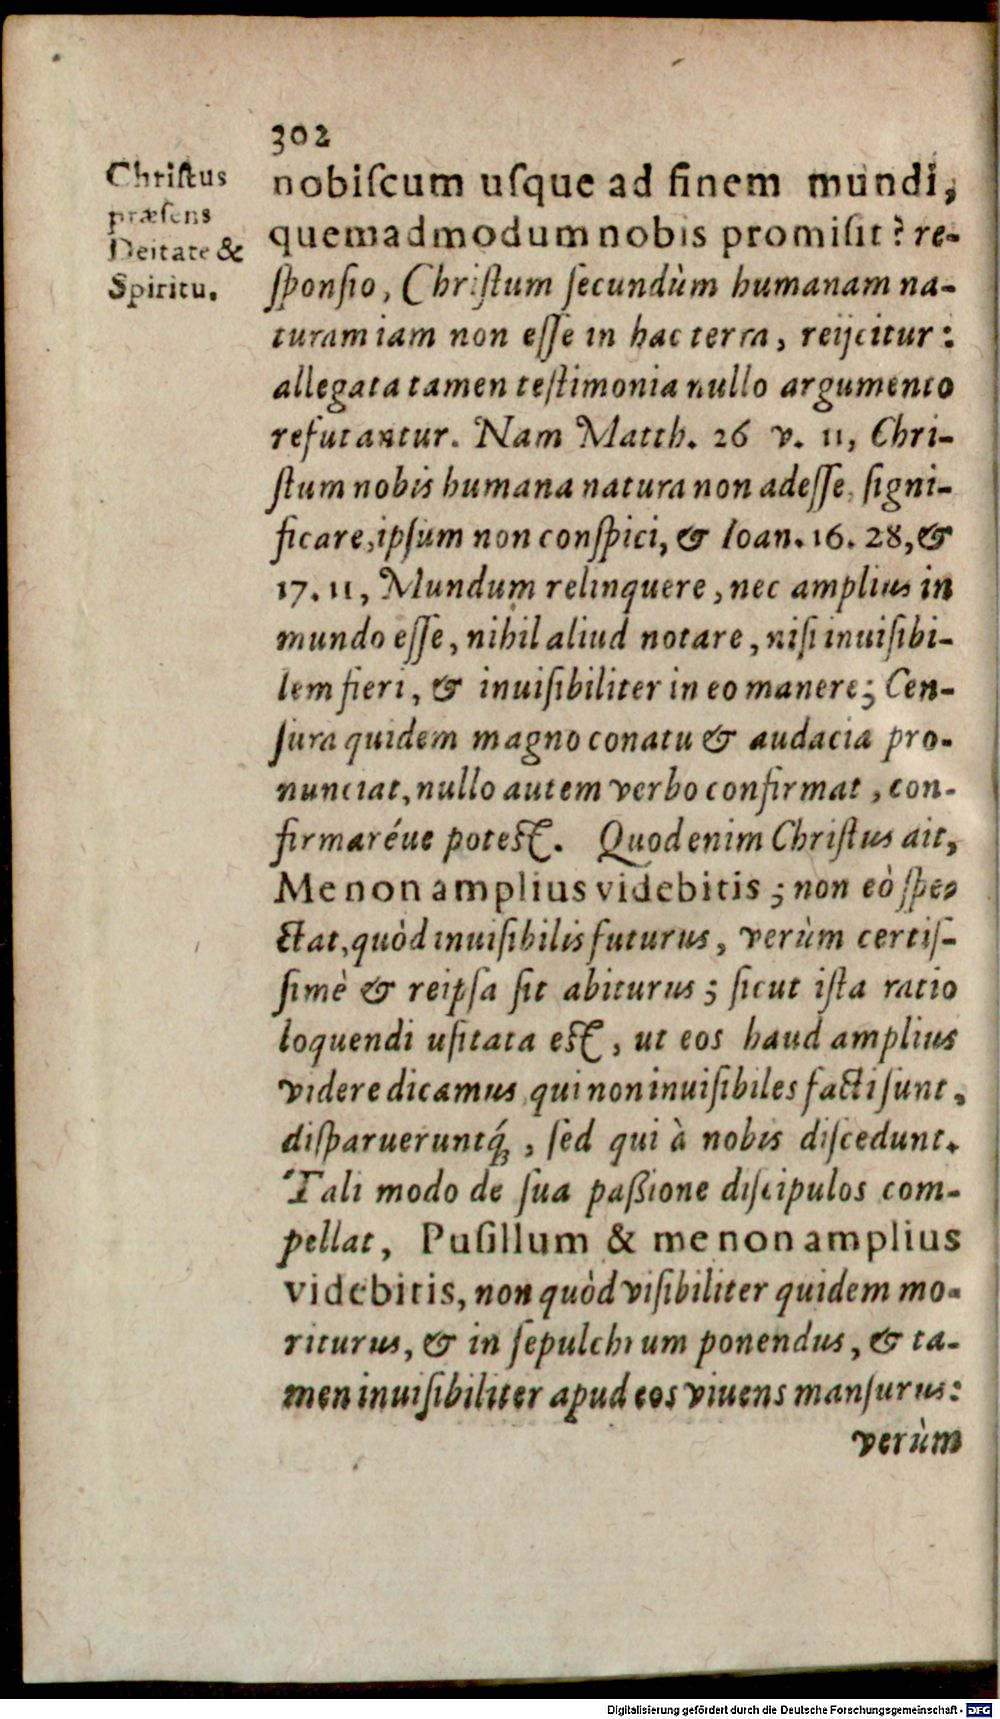 302
Chriſtus
præſens
Deitate &
Spiritu.
nobiſcum uſque ad finem mundi,
quemadmodum nobis promiſit? re-
ſponſio, Chriſtum ſecundùm humanam na-
turam iam non eſſe in hac terra, reijcitur:
allegata tamen teſtimonia nullo argumento
refutantur. Nam Matth. 26 v. 11, Chri-
ſtum nobis humana natura non adeſſe, ſigni-
ficare, ipſum non conſpici, & Ioan. 16. 28, &
17. 11, Mundum relinquere, nec amplius in
mundo eſſe, nihil aliud notare, niſi inuiſibi-
lem fieri, & inuiſibiliter in eo manere; Cen-
ſura quidem magno conatu & audacia pro-
nunciat, nullo autem verbo confirmat, con-
firmaréue poteſt. Quod enim Chriſtus ait,
Me non amplius videbitis; non eò ſpe-
ctat, quòd inuiſibilis futurus, verùm certiſ-
ſimè & reipſa ſit abiturus; ſicut iſta ratio
loquendi uſitata eſt, ut eos haud amplius
videre dicamus, qui non inuiſibiles facti ſunt,
diſparueruntq́ꝫ, ſed qui à nobis diſcedunt.
Tali modo de ſua paßione diſcipulos com-
pellat, Puſillum & me non amplius
videbitis, non quòd viſibiliter quidem mo-
riturus, & in ſepulchrum ponendus, & ta-
men inuiſibiliter apud eos viuens manſurus:
verùm
Digitalisierung gefördert durch die Deutsche Forschungsgemeinschaft - DFG